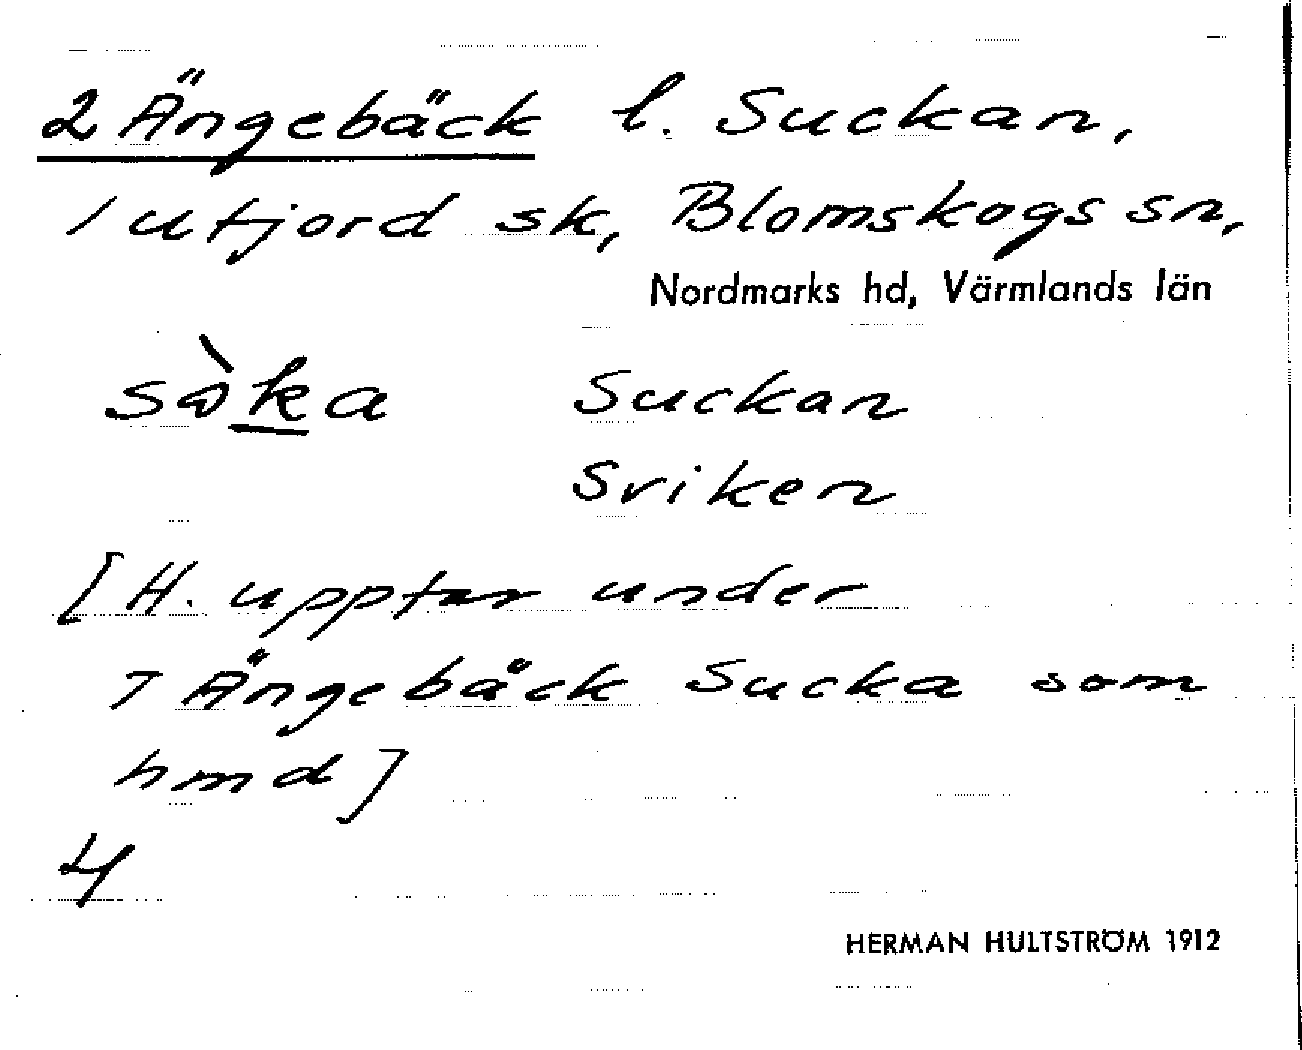 2 Ängebäck l. Suckan,
1 utjord sk, Blomskogs sn,
Nordmarks hd, Värmlands län
Suckan
Sviken
[H. upptar under
7 Ängebäck Sucka som
hmd]
4
HERMAN HULTSTRÖM 1912